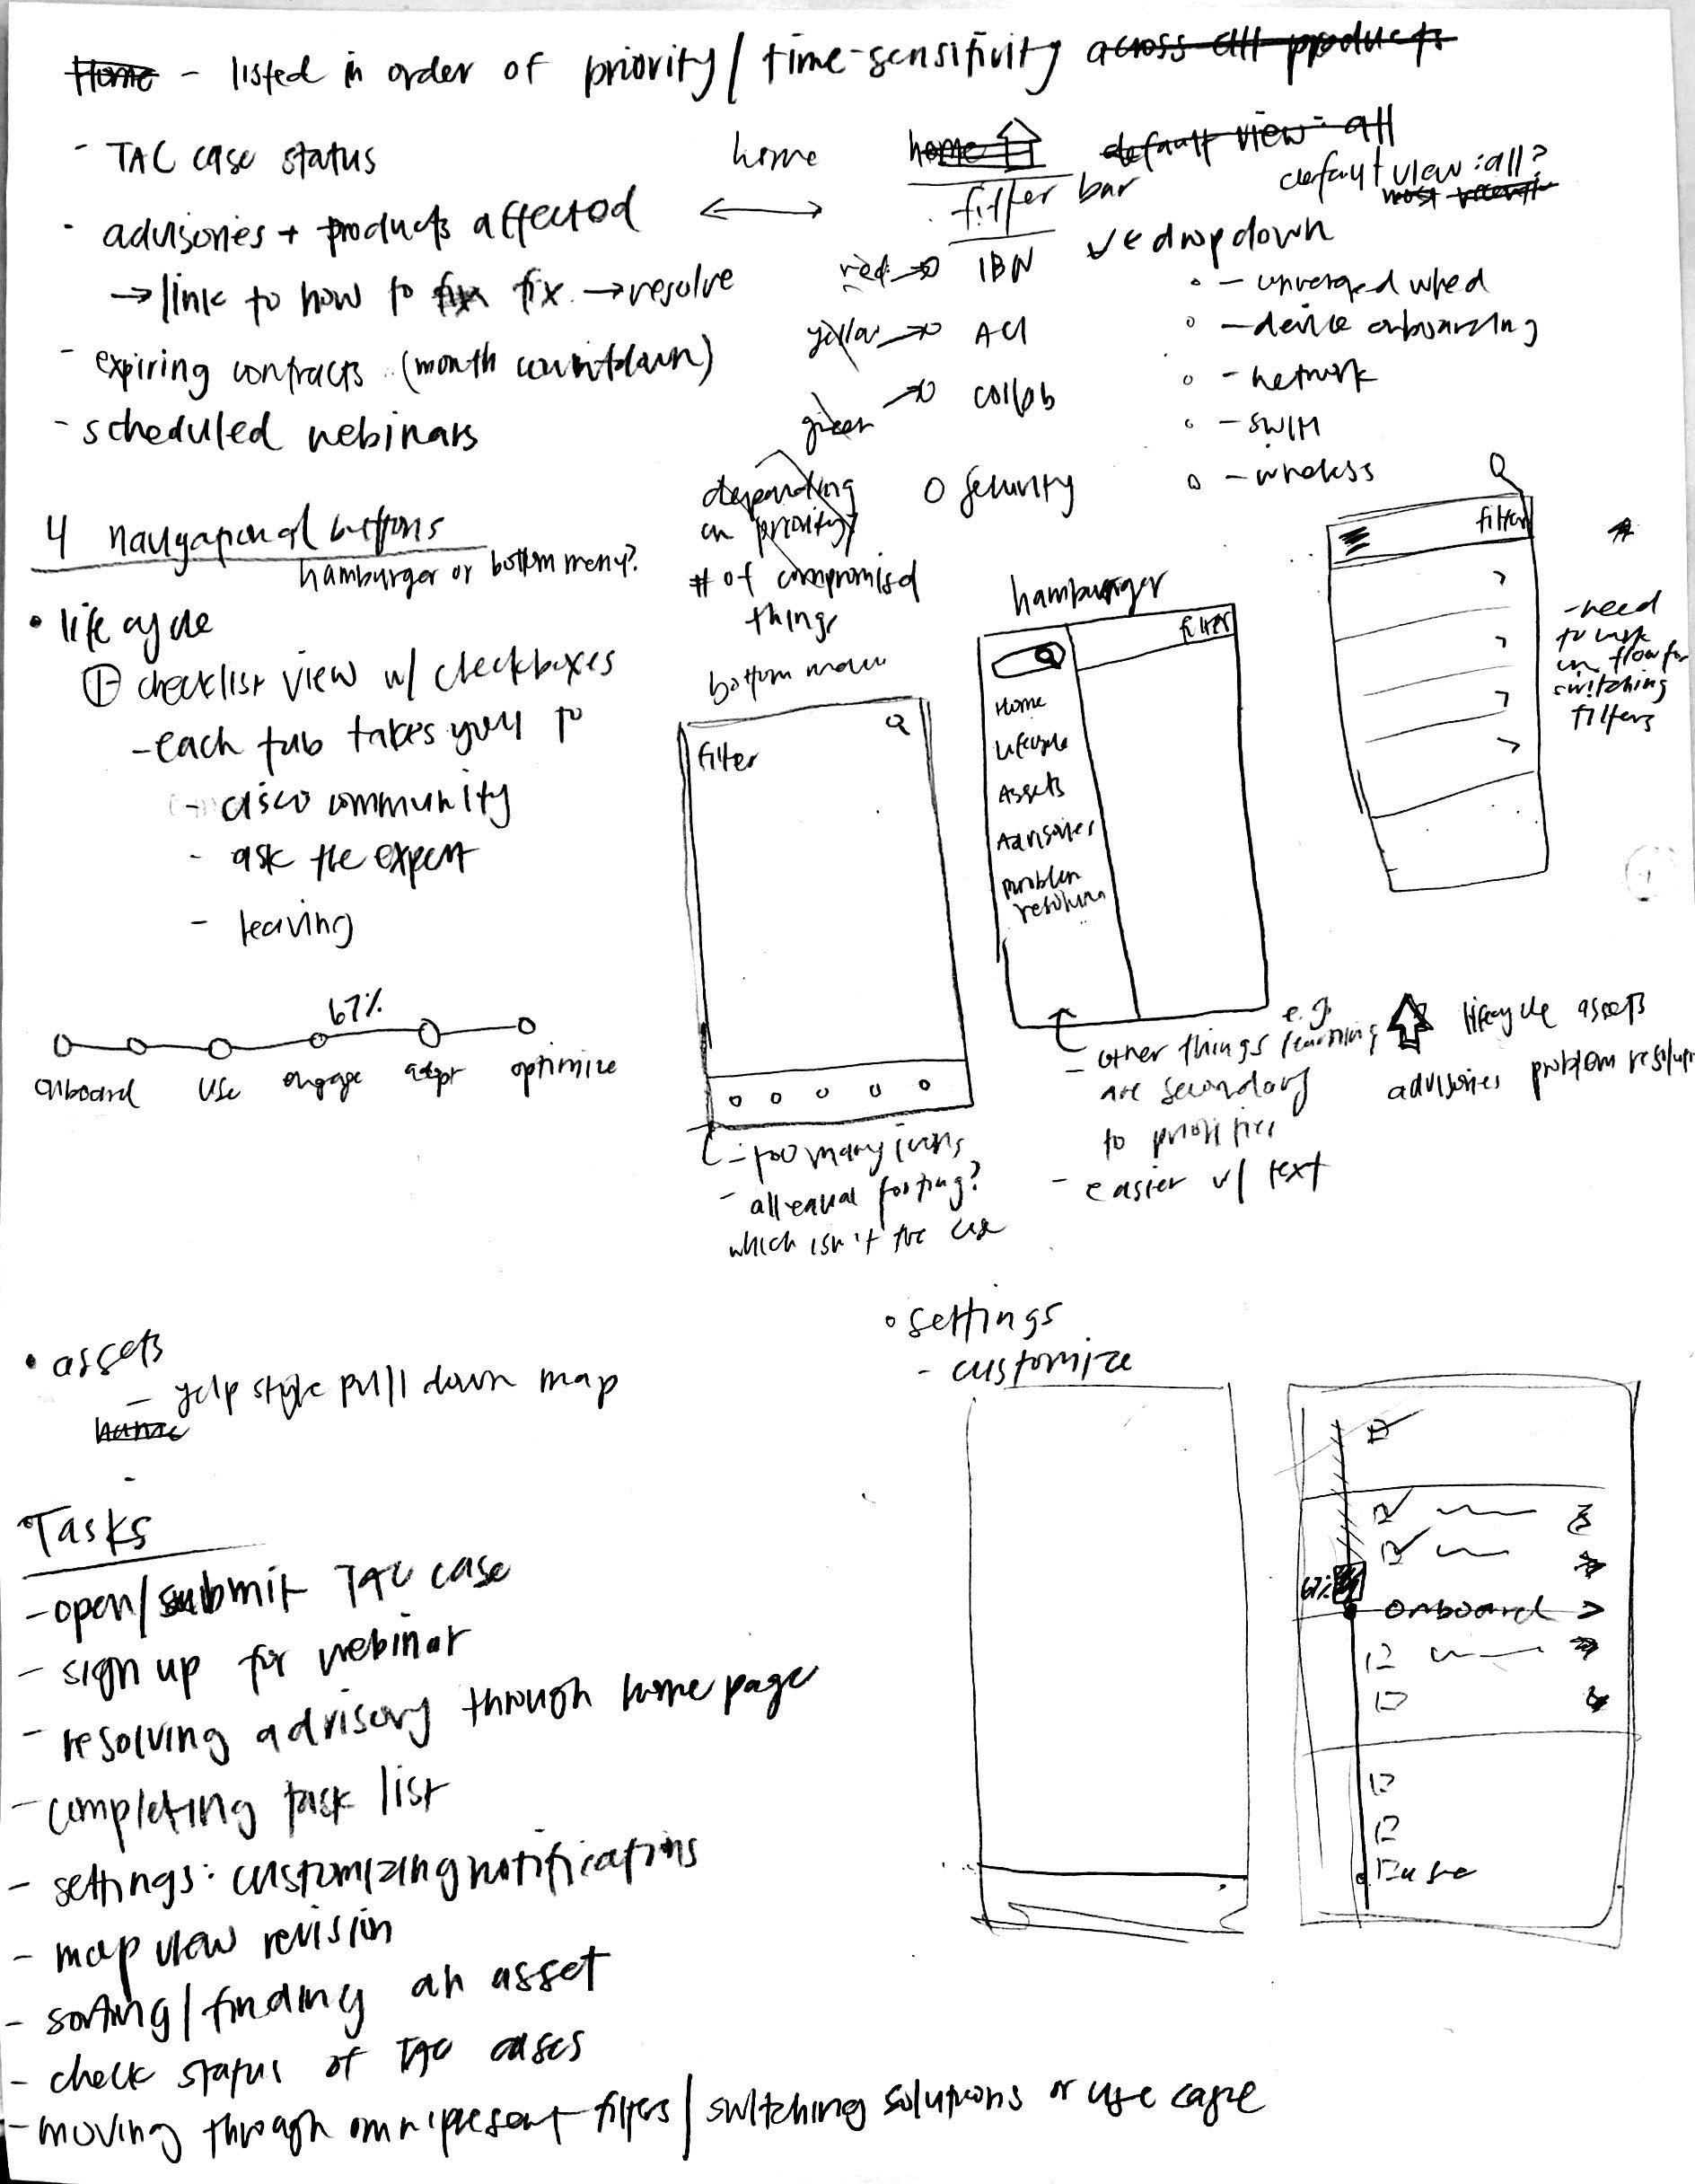 Home - listed in order of priority / time-sensitivity across all products
- TAC case status
- advisories + products affected
→ link to how to fix fix → resolve
- expiring contracts (month countdown)
- scheduled webinars
home
home
default view: all
filter bar
default view: all?
most recent
red → IBN
yellow → ACI
green → collab
O security
depending
on priority
# of compromised
things
dropdown
- device onboarding
- network
- SWIM
- wireless
4 navigational buttons
hamburger or bottom menu?
• lifecycle
① checklist view w/ checkboxes
- each tab takes you to
- cisco community
- ask the expert
67%
onboard
use
engage
adopt
optimize
bottom menu
filter
- too many icons
- all equal footing?
which isn't the case
hamburger
filter
Home
Lifecycle
Assets
Advisories
problem
resolution
- other things e.g. learning
are secondary
to priorities
- easier w/ text
filter
- need
to work
on flow for
switching
filters
lifecycle assets
advisories problem resolution
• assets
- yelp style pull down map
home
• settings
- customize
67%
onboard >
use
Tasks
- open/submit TAC case
- sign up for webinar
- resolving advisory through home page
- completing task list
- settings: customizing notifications
- map view revision
- sorting/finding an asset
- check status of TAC cases
- moving through omnipresent filters / switching solutions or use case